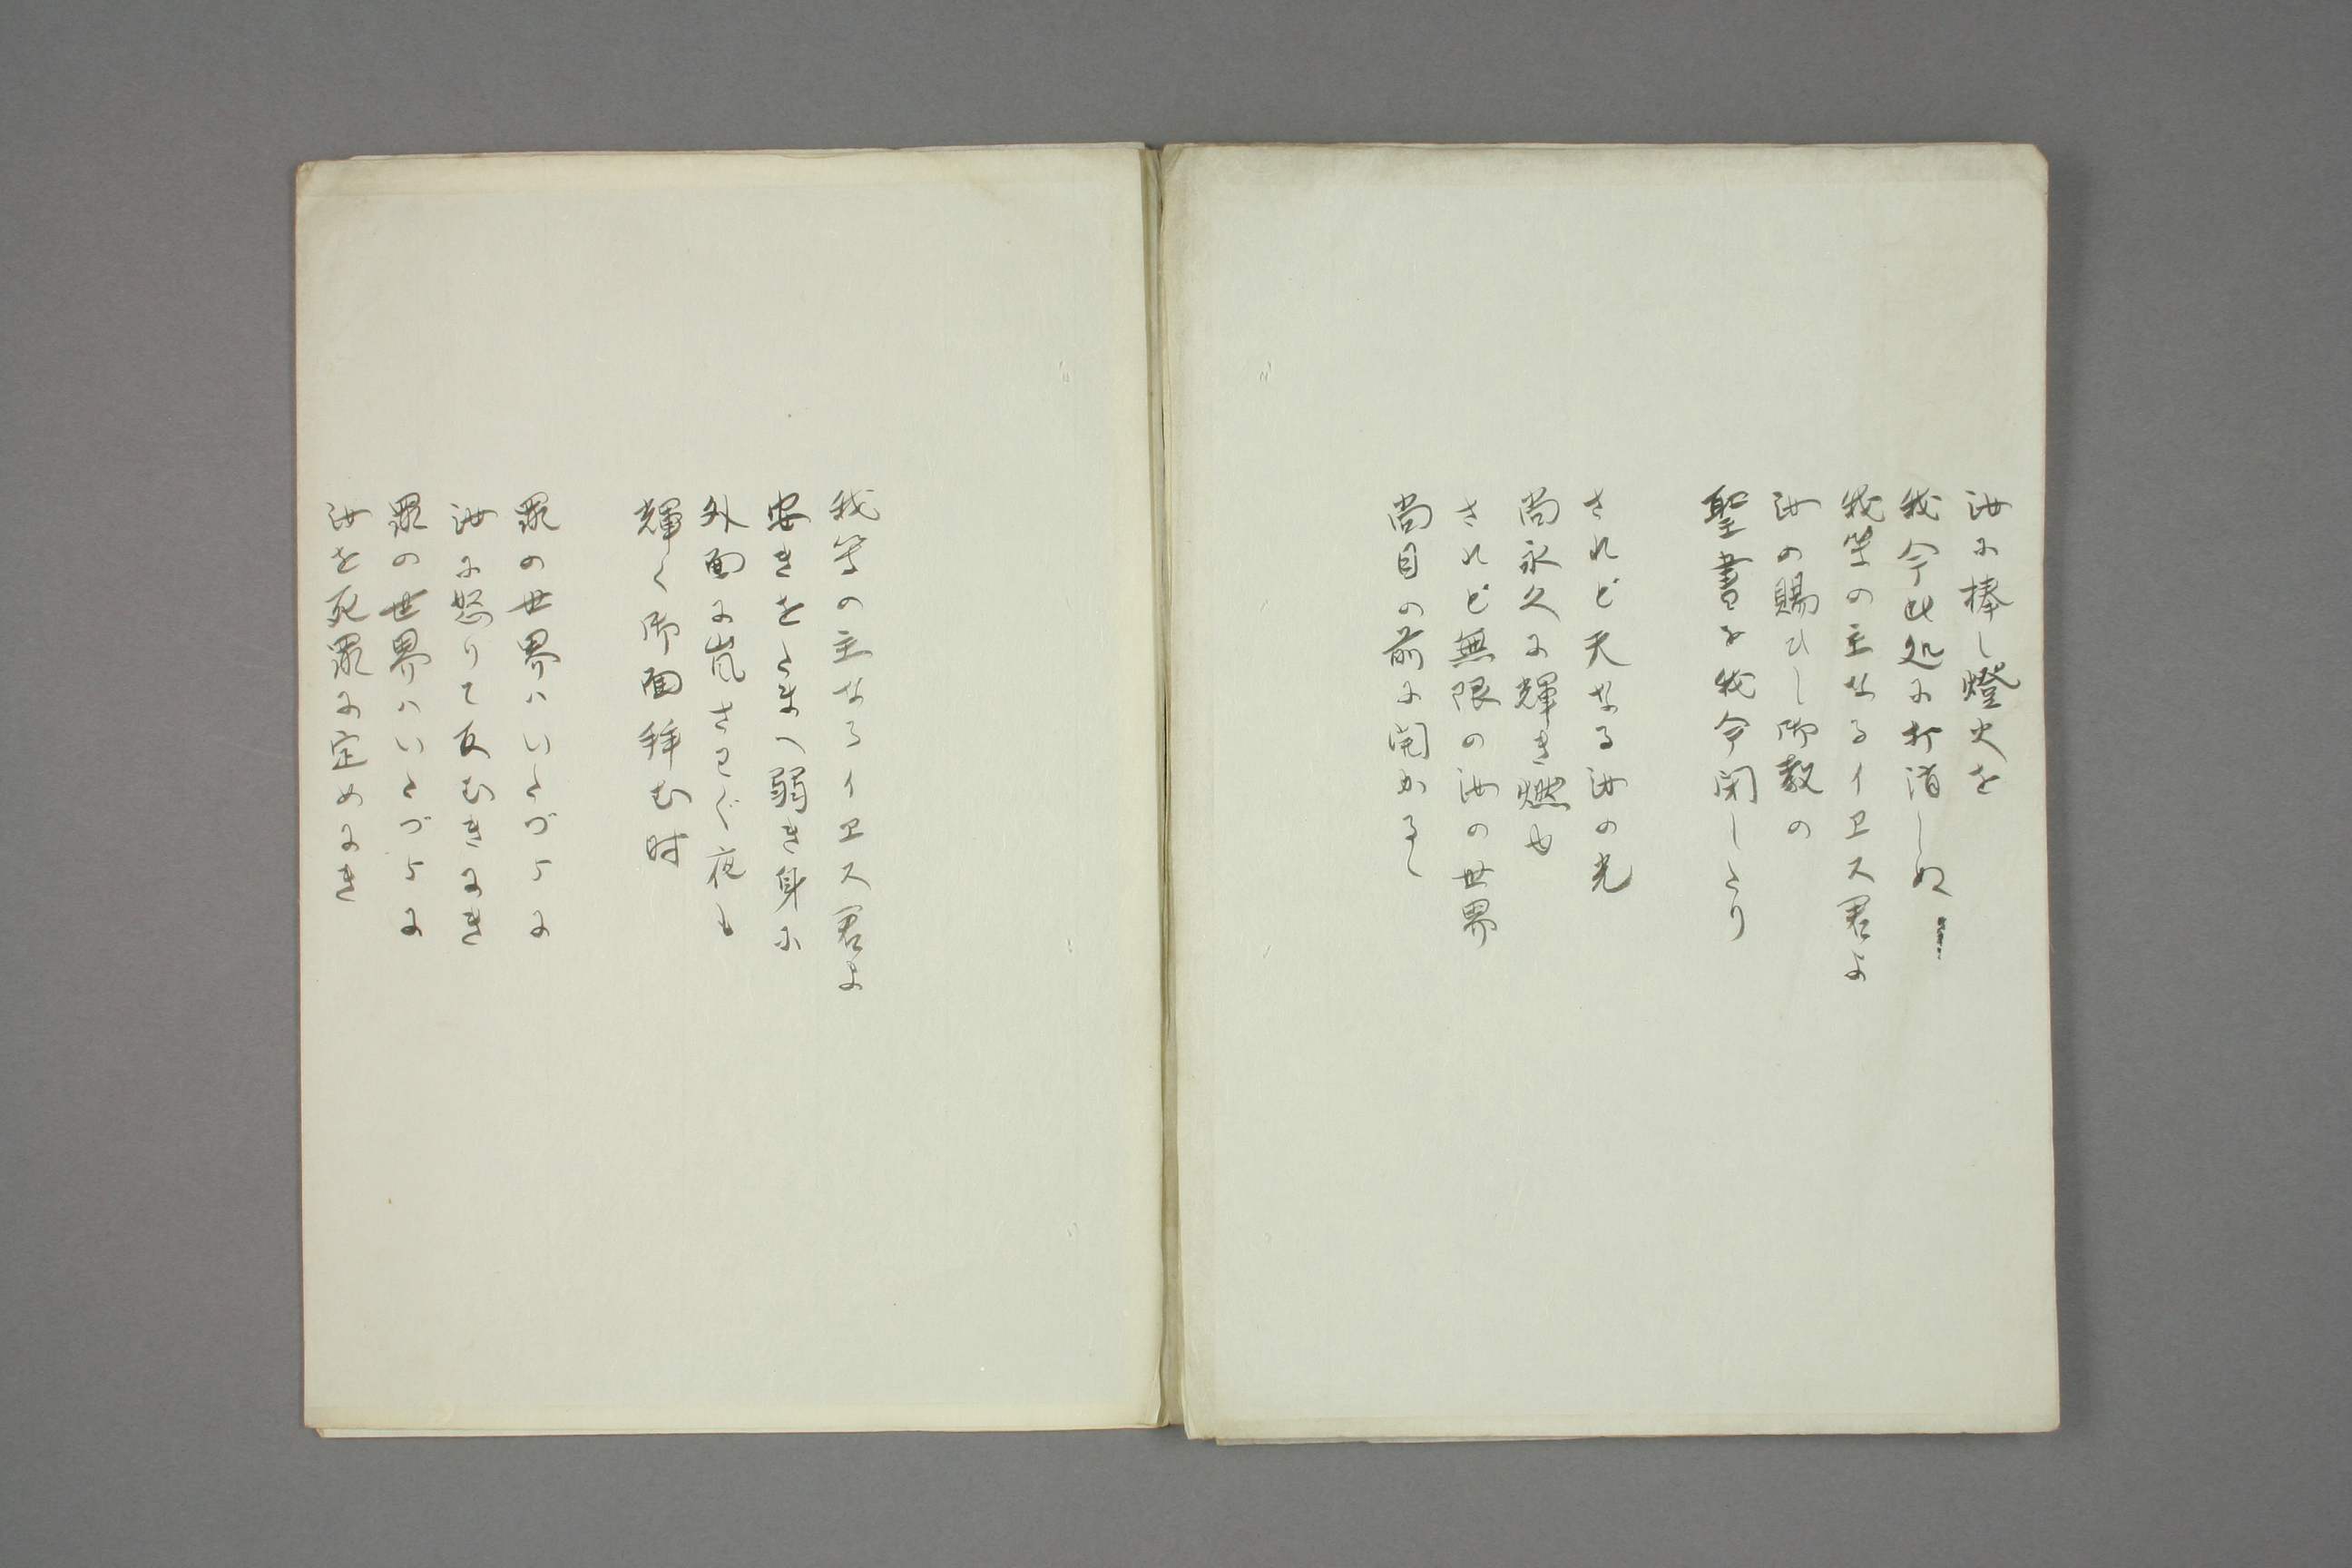 汝に捧し燈火を
我今此処に打消しぬ
我等の主なるイエス君よ
汝の賜ひし御教の
聖書を我今閉したり
されど天なる汝の光
尚永久に輝き燃せ
されど無限の汝の世界
尚目の前に開かるゝ
我等の主なるイエス君よ
安きをたまへ弱き身に
外面に嵐さわぐ夜も
輝く御面拝む時
罪の世界はいたづらに
汝に怒りて反むきにき
罪の世界はいたづらに
汝を死罪に定めにき